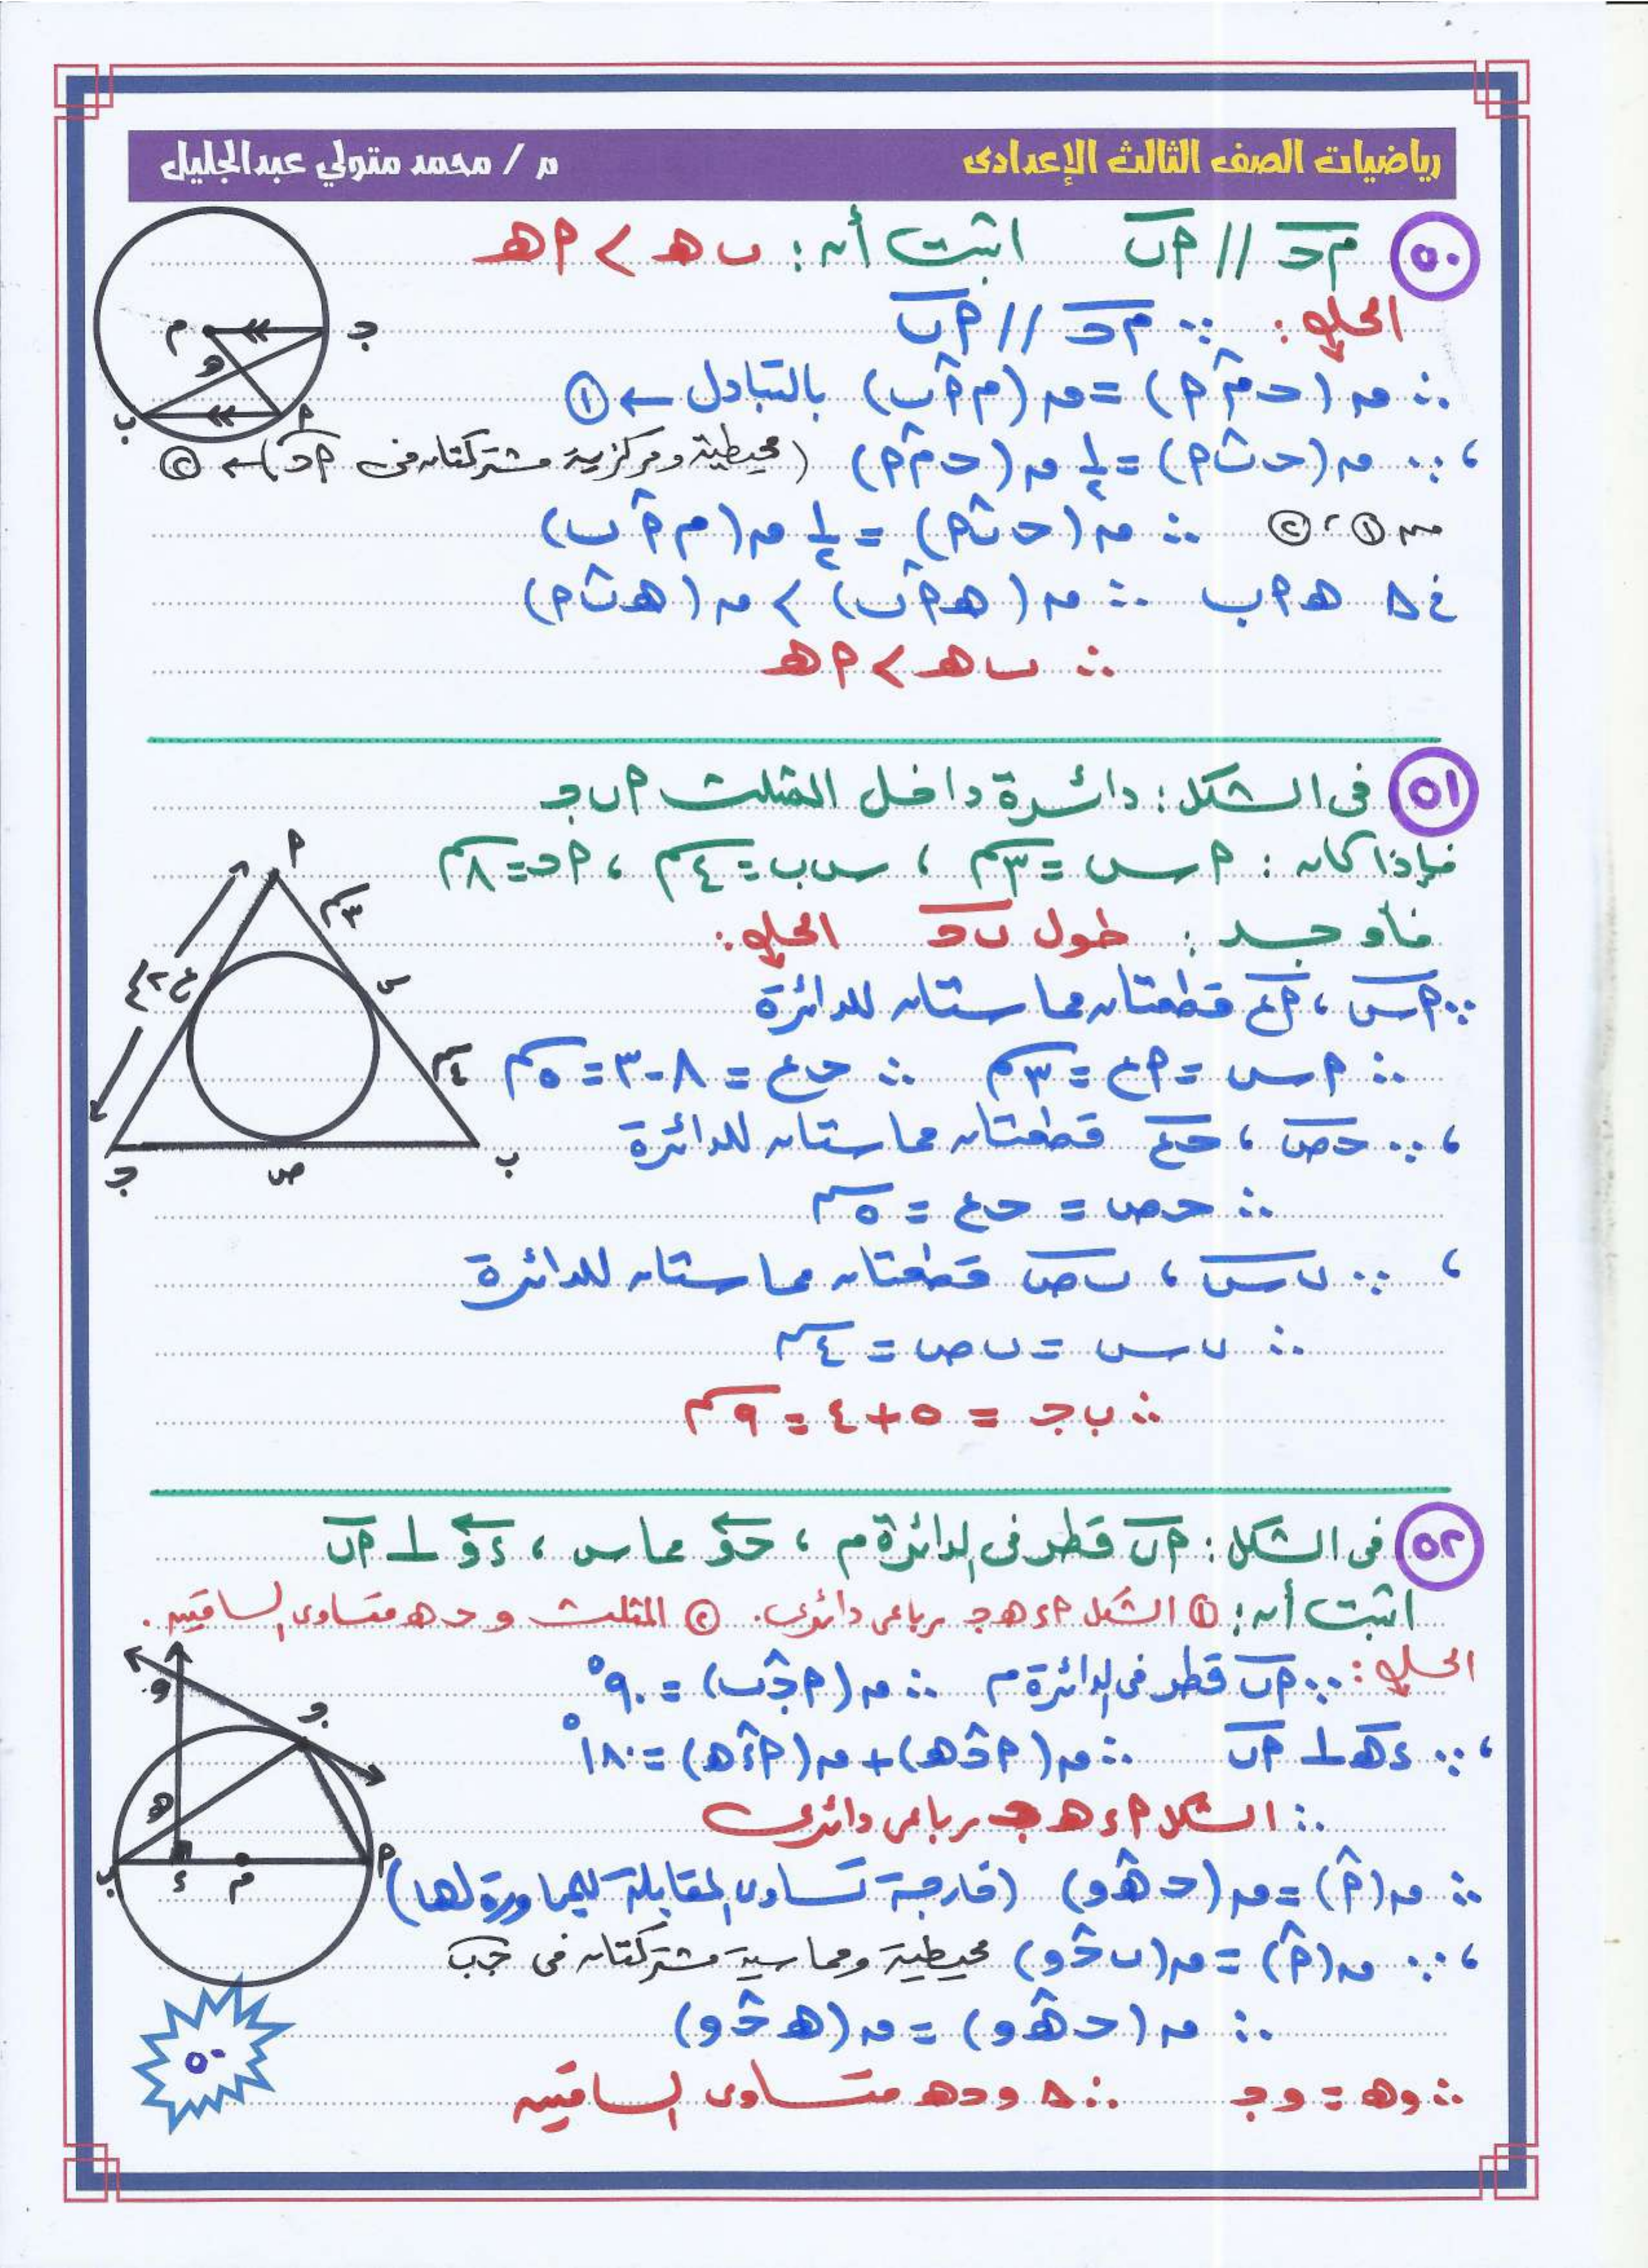 رياضيات الصف الثالث الإعدادى
م / محمد متولي عبدالجليل
٥٠ م ج // أ ب اثبت أن : ب هـ > أ هـ
الحل : ∵ م ج // أ ب
∴ ق (ج م̂ أ) = ق (م أ̂ ب) بالتبادل ← ①
، ∵ ق (ج ب̂ أ) = ١/٢ ق (ج م̂ أ) (محيطية ومركزية مشتركتان فى أ ج) ← ②
من ① ، ② ∴ ق (ج ب̂ أ) = ١/٢ ق (م أ̂ ب)
فى △ هـ أ ب ∴ ق (هـ أ̂ ب) > ق (هـ ب̂ أ)
∴ ب هـ > أ هـ
م ج هـ ب أ
٥١ فى الشكل : دائرة داخل المثلث أ ب ج
فإذا كان : أ س = ٣سم ، س ب = ٤سم ، أ ج = ٨سم
فأوجد : طول ب ج الحل :
∵ أ س ، أ ع قطعتان مماستان للدائرة
∴ أ س = أ ع = ٣سم ∴ ج ع = ٨ - ٣ = ٥سم
، ∵ ج ص ، ج ع قطعتان مماستان للدائرة
∴ ج ص = ج ع = ٥سم
، ∵ ب س ، ب ص قطعتان مماستان للدائرة
∴ ب س = ب ص = ٤سم
∴ ب ج = ٥ + ٤ = ٩سم
أ
٣سم
س
ع
٤سم
ج ص ب
٥٢ فى الشكل : أ ب قطر فى الدائرة م ، ج و مماس ، د و ⊥ أ ب
اثبت أن : ① الشكل أ د هـ ج رباعى دائرى . ② المثلث و ج هـ متساوى الساقين .
الحل : ∵ أ ب قطر فى الدائرة م ∴ ق (أ ج̂ ب) = ٩٠°
، ∵ د هـ ⊥ أ ب ∴ ق (أ ج̂ هـ) + ق (أ د̂ هـ) = ١٨٠°
∴ الشكل أ د هـ ج رباعى دائرى
∴ ق (أ̂) = ق (ج هـ̂ و) (خارجة تساوى المقابلة للمجاورة لها)
، ∵ ق (أ̂) = ق (ب ج̂ و) محيطية ومماسية مشتركتان فى ج ب
∴ ق (ج هـ̂ و) = ق (هـ ج̂ و)
∴ و هـ = و ج ∴ △ و ج هـ متساوى الساقين
و ج هـ ب د م أ
٥٠